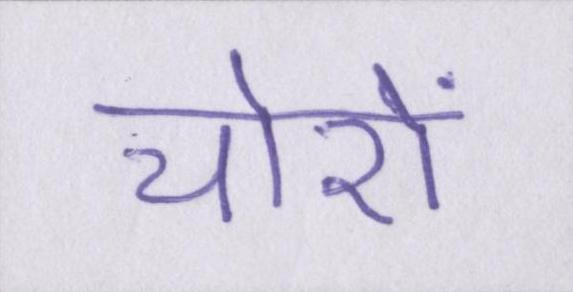 चोरों